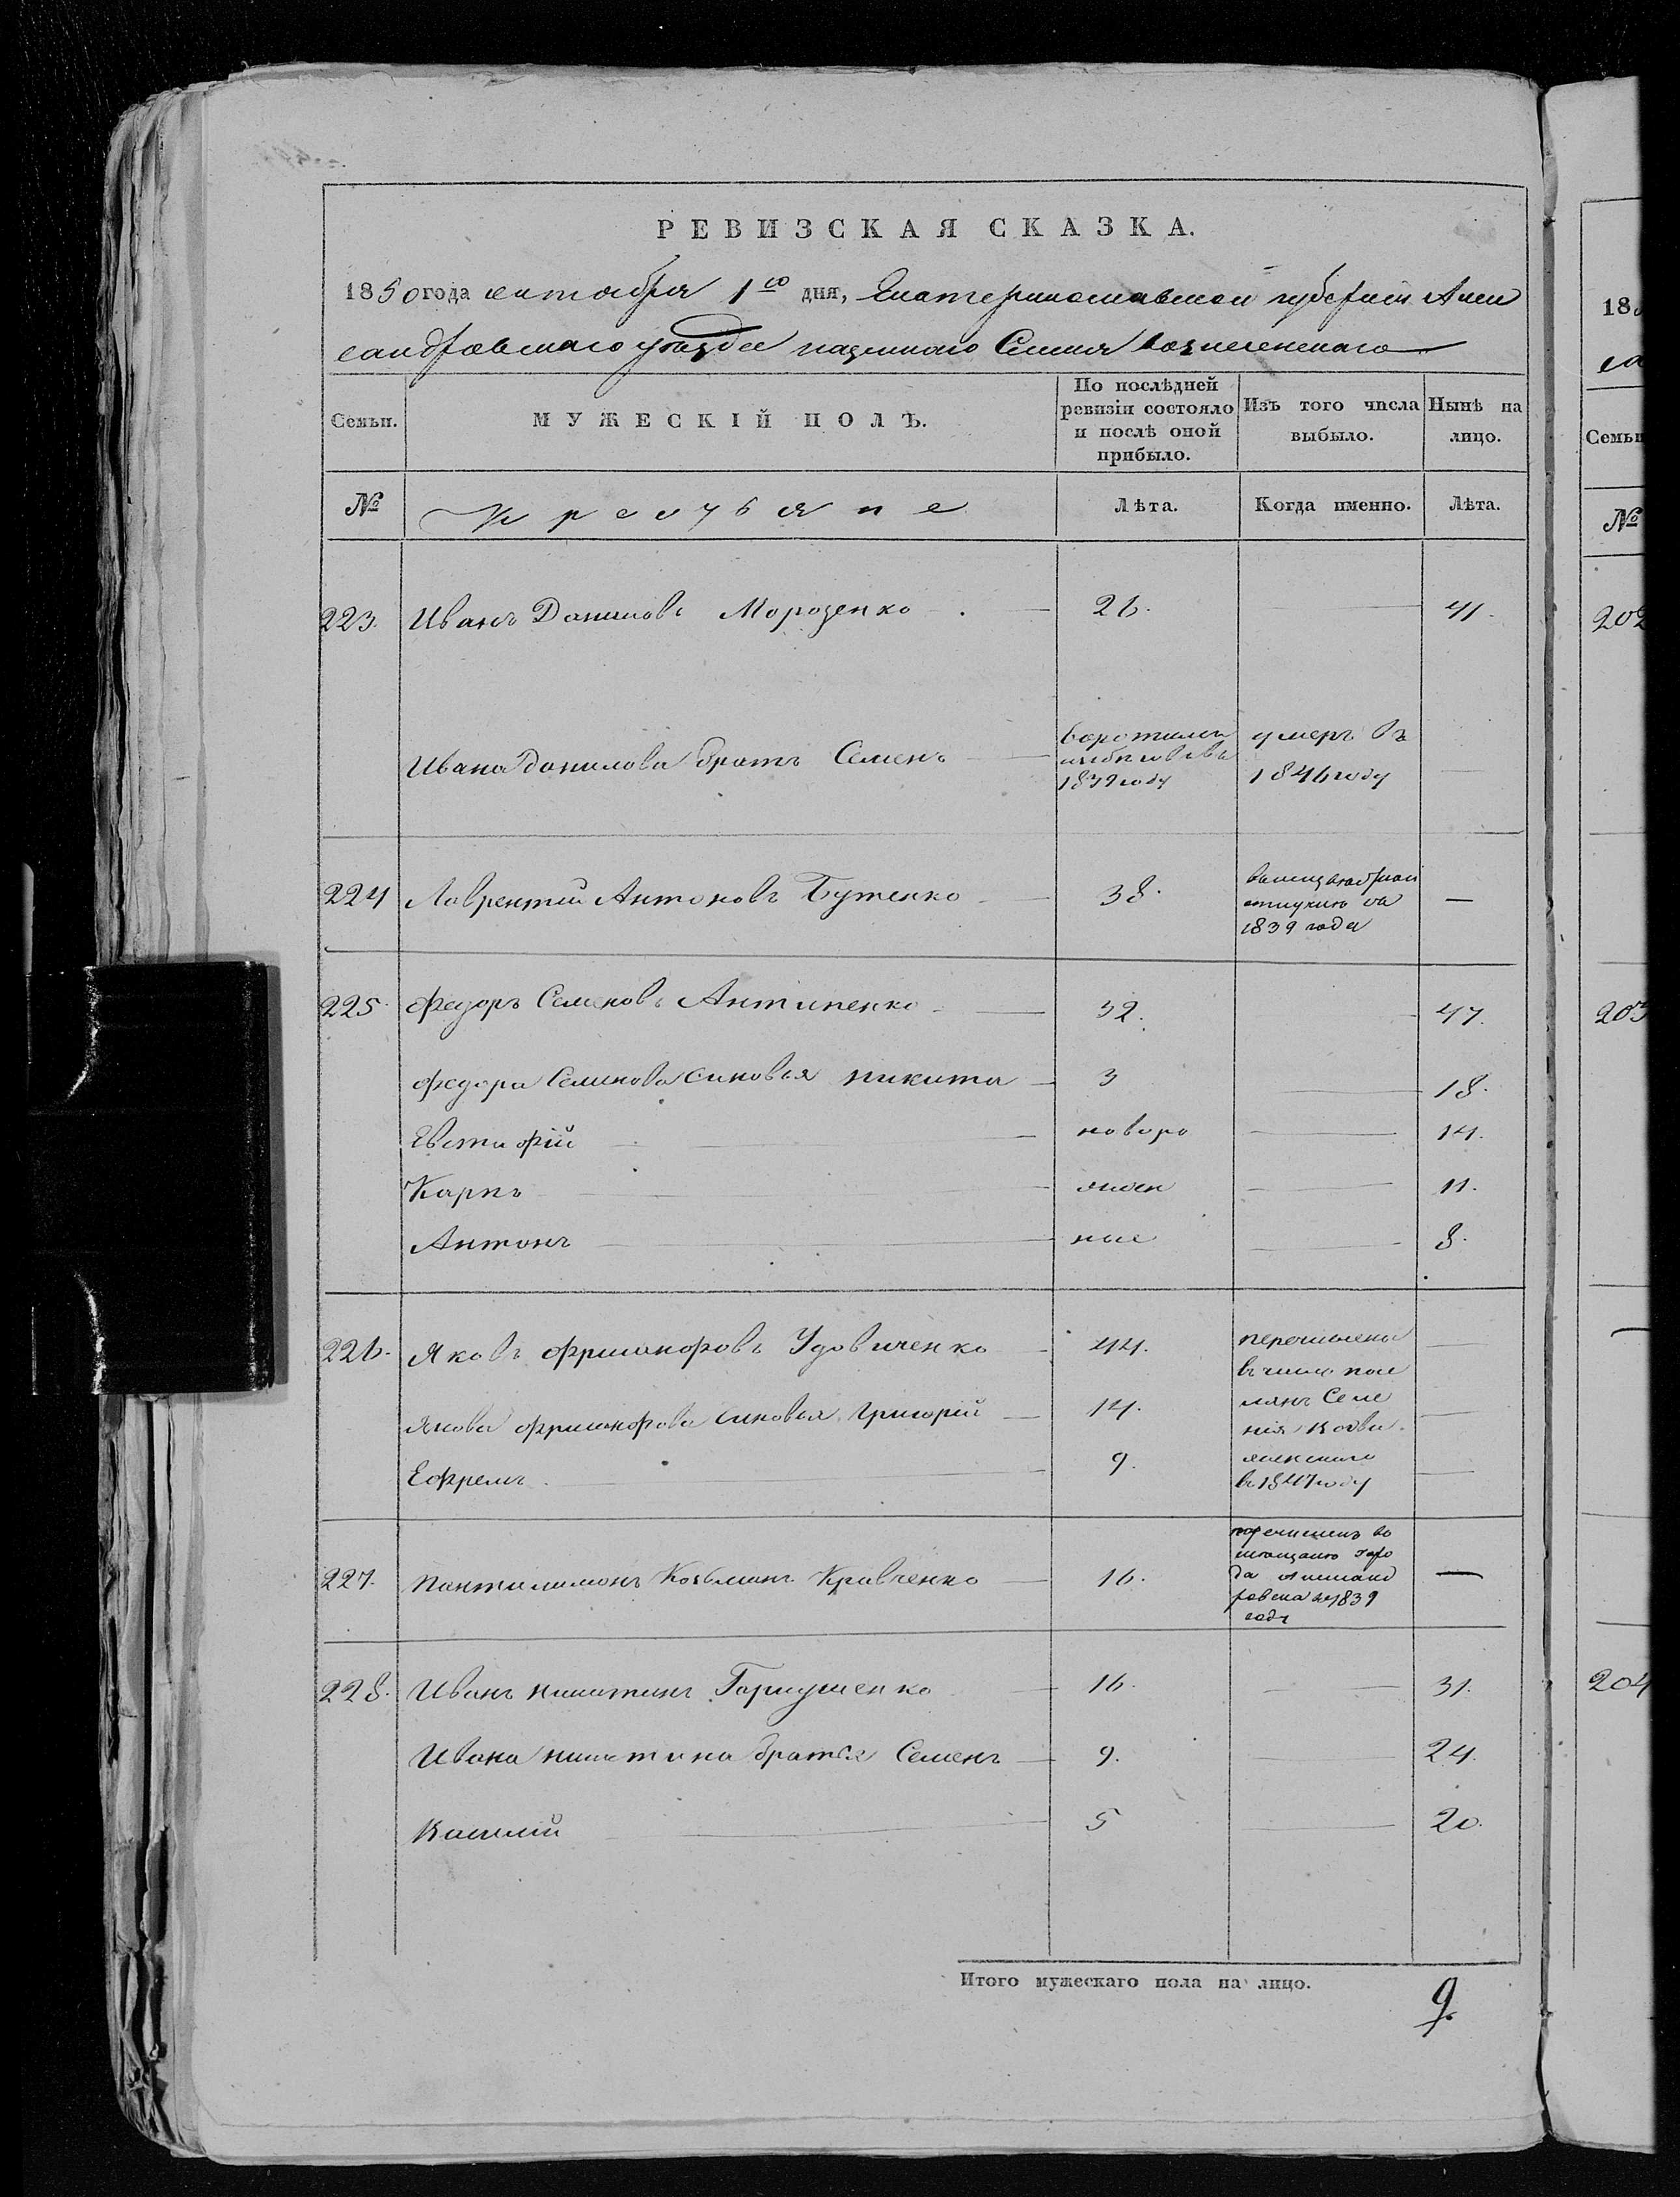 РЕВИЗСКАЯ СКАЗКА.
1850 года октября 1го дня, Екатеринославской губернии Алек
сандровскаго уезда казеннаго Селения вознесенскаго
Семьи. МУЖЕСКІЙ ПОЛЪ. По послѣдней ревизіи состояло и послѣ оной прибыло. Изъ того числа выбыло. Нынѣ на лицо.
№ крестьяне Лѣта. Когда именно. Лѣта.
223. Иванъ Даниловъ Морозенко 26. 41.
Ивана данилова братъ Семенъ 1839 году умеръ въ 1846 году
224 Лаврентий Антоновъ Бутенко 38. 1839 года —
225. федоръ Семеновъ Антипенко 32. 47.
федора Семенова Синовья никита 3 18.
Евстифій новоро 14.
Карпъ жден 11.
Антонъ ные 8.
226. Яковъ фришкофовъ Удовиченко 44. перечислены
въ число посе
Якова фришкофова Синовья Григорий 14. лянъ Селе
ния
Ефремъ. 9. въ 1847 году
227. Пантилимонъ Козьминъ Кравченко 16. перечисленъ во мещане горо да Александ ровска 1839 году —
228. Иванъ никитинъ Горпушенко 16. 31.
Ивана никитина братья Семенъ 9. 24.
Василий 5 20.
Итого мужескаго пола на лицо.
9.
18
са
Семьи
№
202
203
204